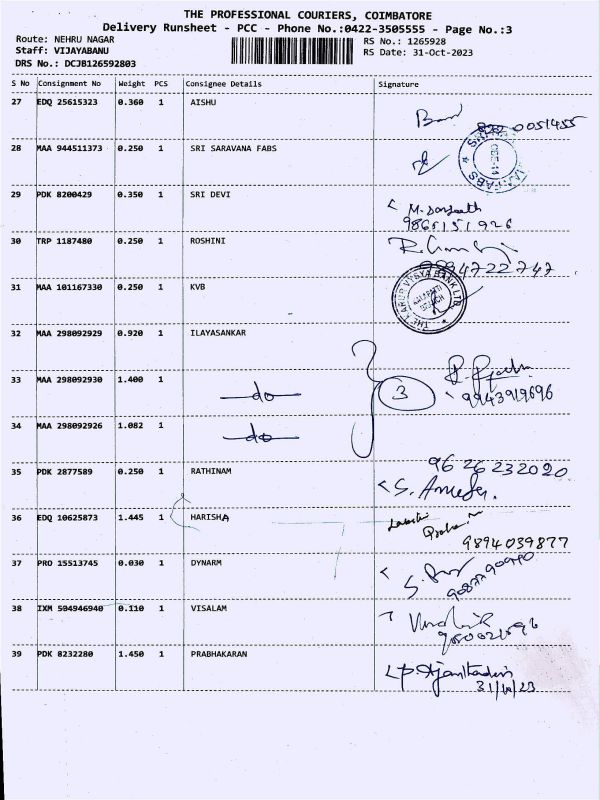 THE PROFESSIONAL COURIERS, COIMBATORE
Delivery Runsheet - PCC - Phone No.:0422-3505555 - Page No.:3
Route: NEHRU NAGAR RS No.: 1265928
Staff: VIJAYABANU RS Date: 31-Oct-2023
DRS No.: DCJB126592803
S No Consignment No Weight PCS Consignee Details Signature
27 EDQ 25615323 0.360 1 AISHU
0051455
28 MAA 944511373 0.250 1 SRI SARAVANA FABS
29 PDK 8200429 0.350 1 SRI DEVI
9865151926
30 TRP 1187480 0.250 1 ROSHINI
9994722747
31 MAA 101167330 0.250 1 KVB
THE KARUR VYSYA BANK LTD.
32 MAA 298092929 0.920 1 ILAYASANKAR
33 MAA 298092930 1.400 1 do 3
9943919696
34 MAA 298092926 1.082 1 do
35 PDK 2877589 0.250 1 RATHINAM
9626232020
36 EDQ 10625873 1.445 1 HARISHA
9894039877
37 PRO 15513745 0.030 1 DYNARM
38 IXM 504946940 0.110 1 VISALAM
39 PDK 8232280 1.450 1 PRABHAKARAN
31/10/23